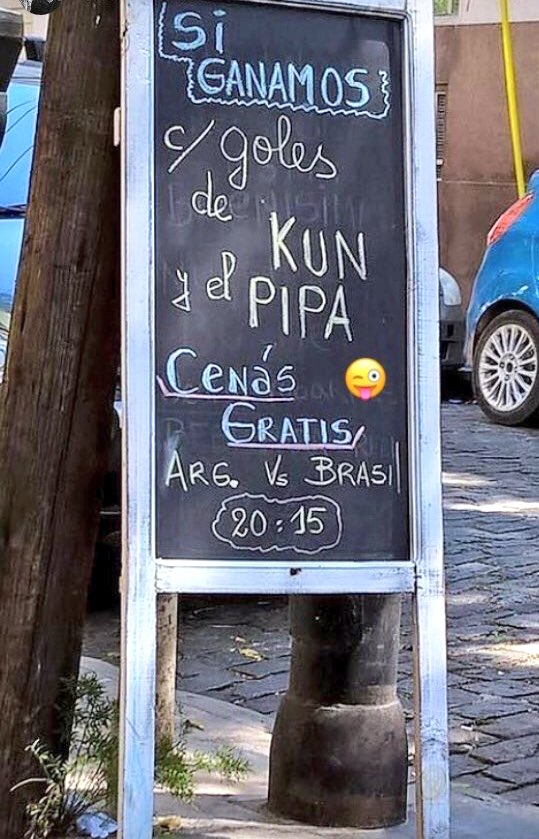 Si
GANAMOS
c/ goles
de
KUN
y el PIPA
Cenás
GRATIS
ARG. Vs BRASIL
20:15